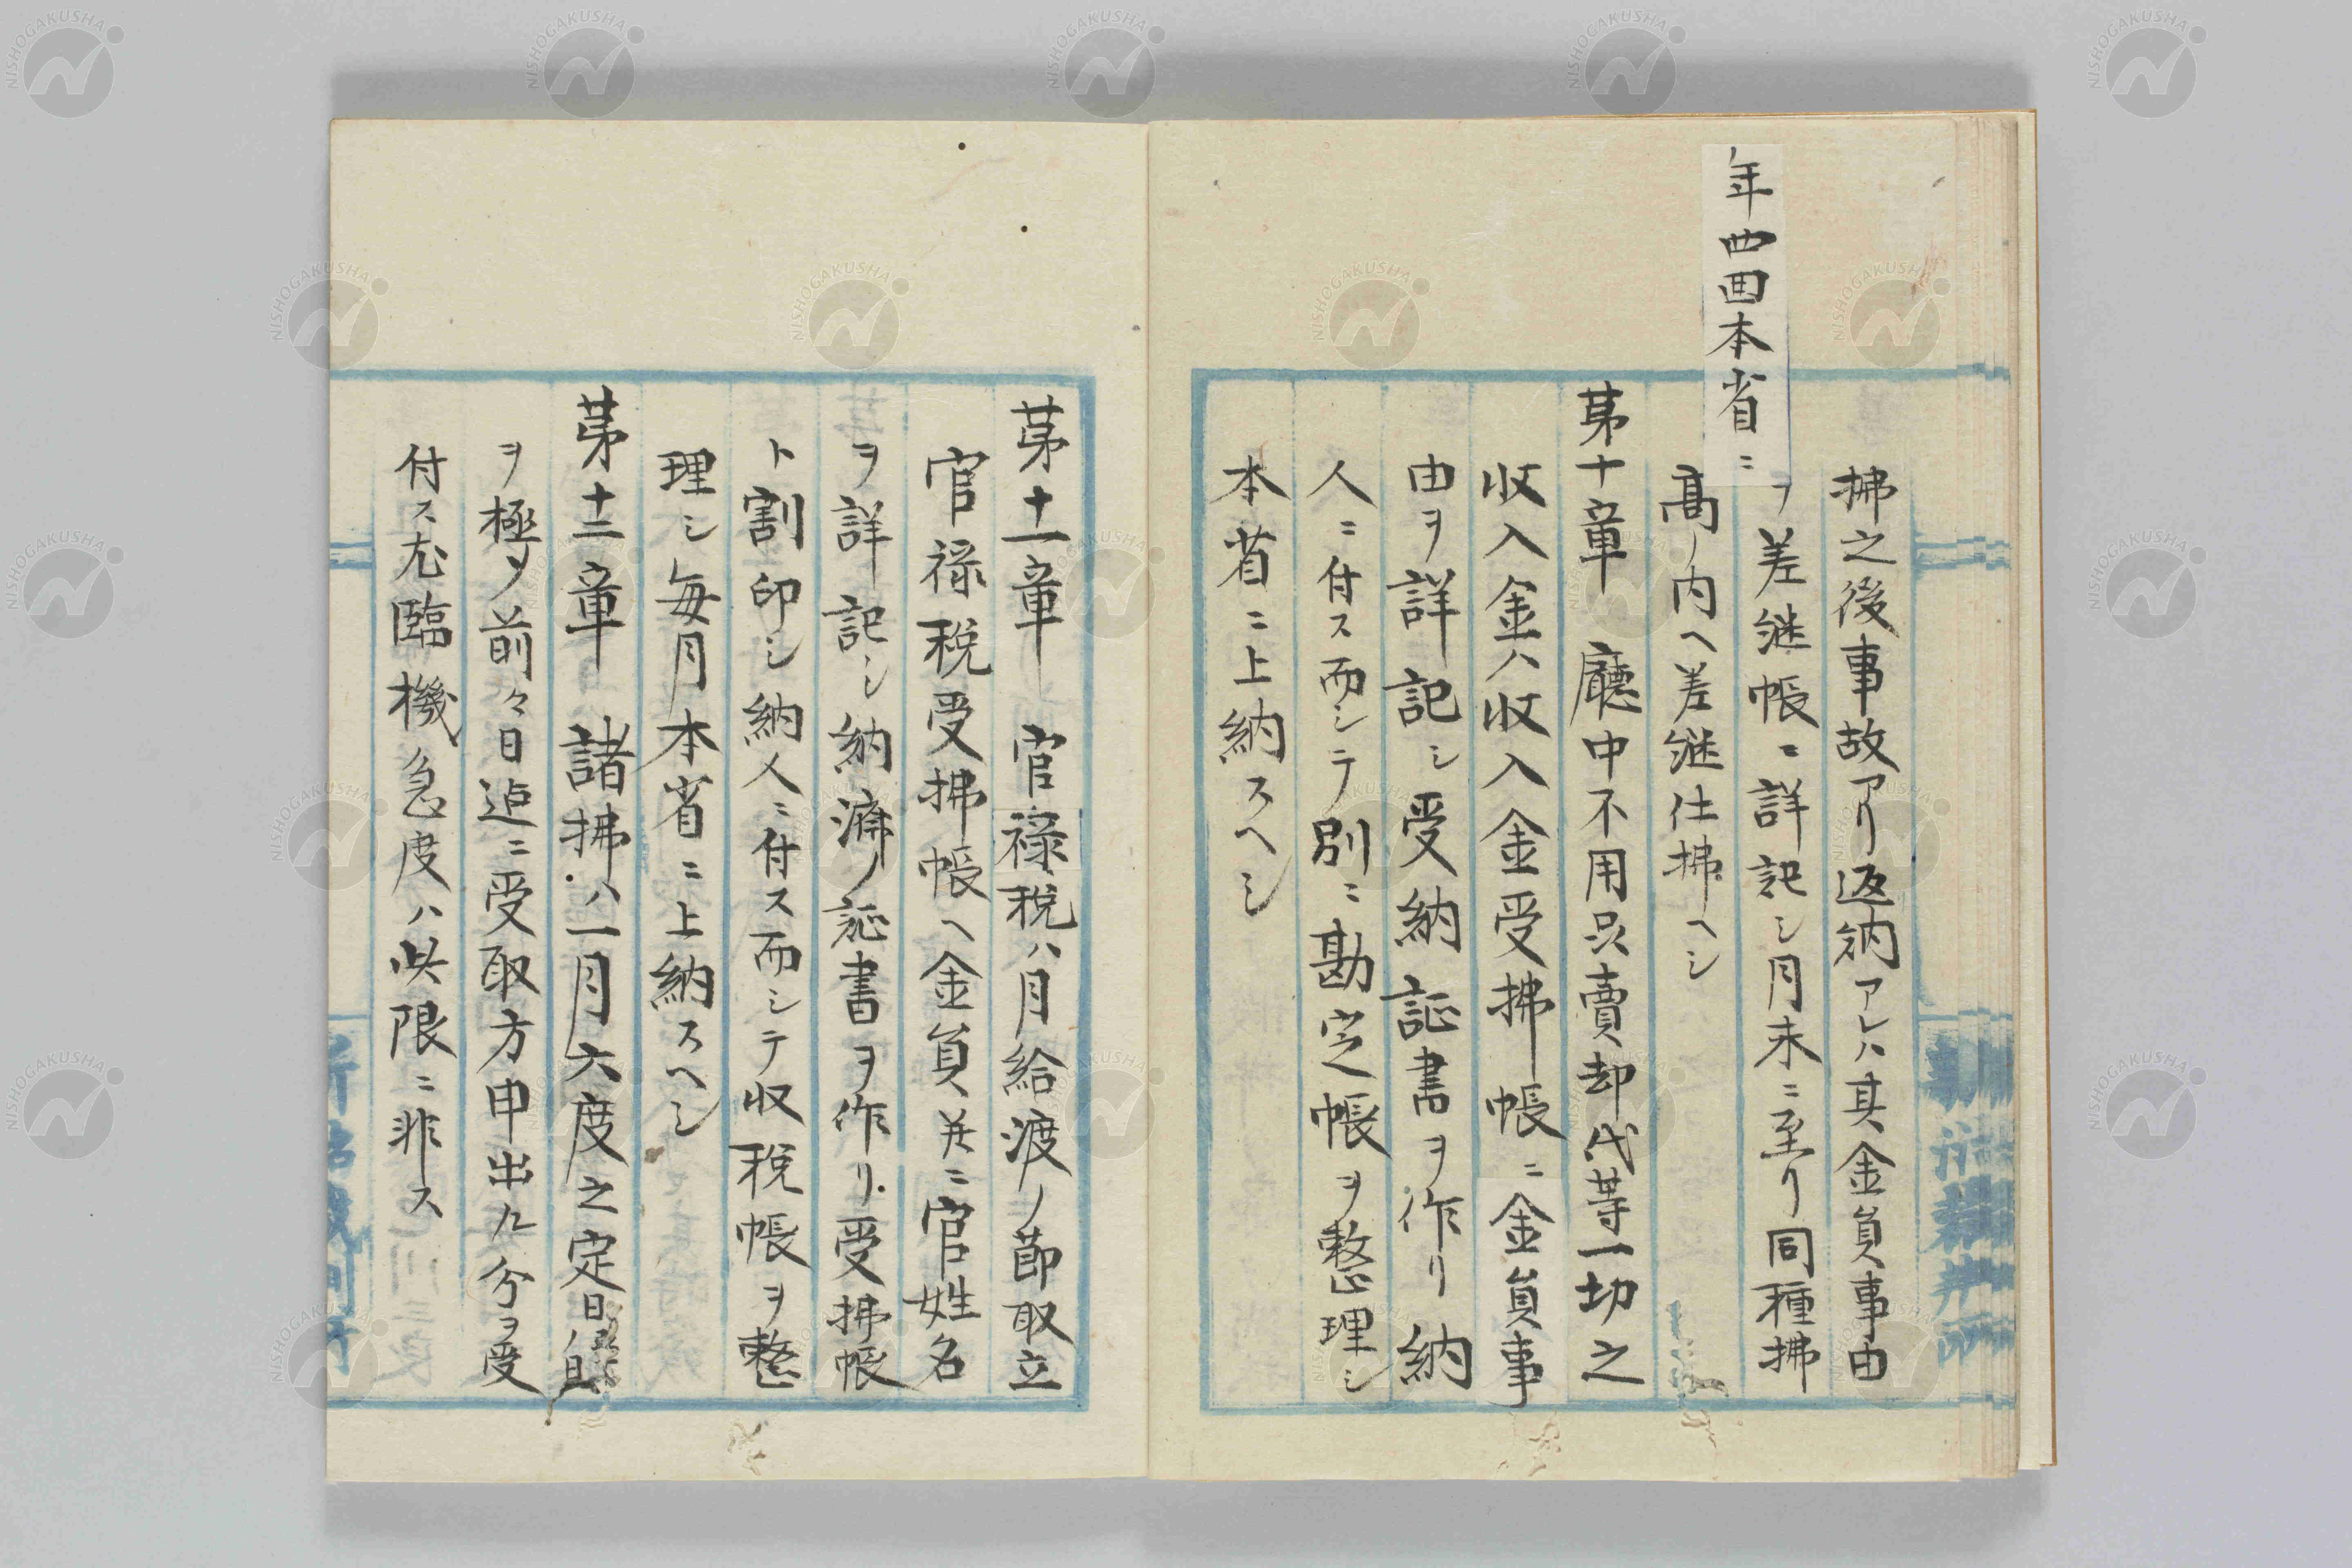 拂之後事故アリ返納アレハ其金員事由
ヲ差継帳ニ詳記シ月末ニ至リ同種拂
高ノ内ヘ差継仕拂ヘシ
年四回本省ニ
苐十章 廳中不用品賣却代等一切之
收入金ハ收入金受拂帳ニ金員事
由ヲ詳記シ受納証書ヲ作リ納
人ニ付ス而シテ別ニ勘定帳ヲ整理シ
本省ニ上納スヘシ
苐十一章 官禄税ハ月給渡ノ節取立
官禄税受拂帳ヘ金員并ニ官姓名
ヲ詳記シ納濟ノ証書ヲ作リ受拂帳
ト割印シ納人ニ付ス而シテ収税帳ヲ整
理シ毎月本省ニ上納スヘシ
苐十二章 諸拂ハ一月六度之定日
ヲ極メ前々日迠ニ受取方申出ル分ヲ受
付ス尤臨機急度ハ此限ニ非ス
NISHOGAKUSHA